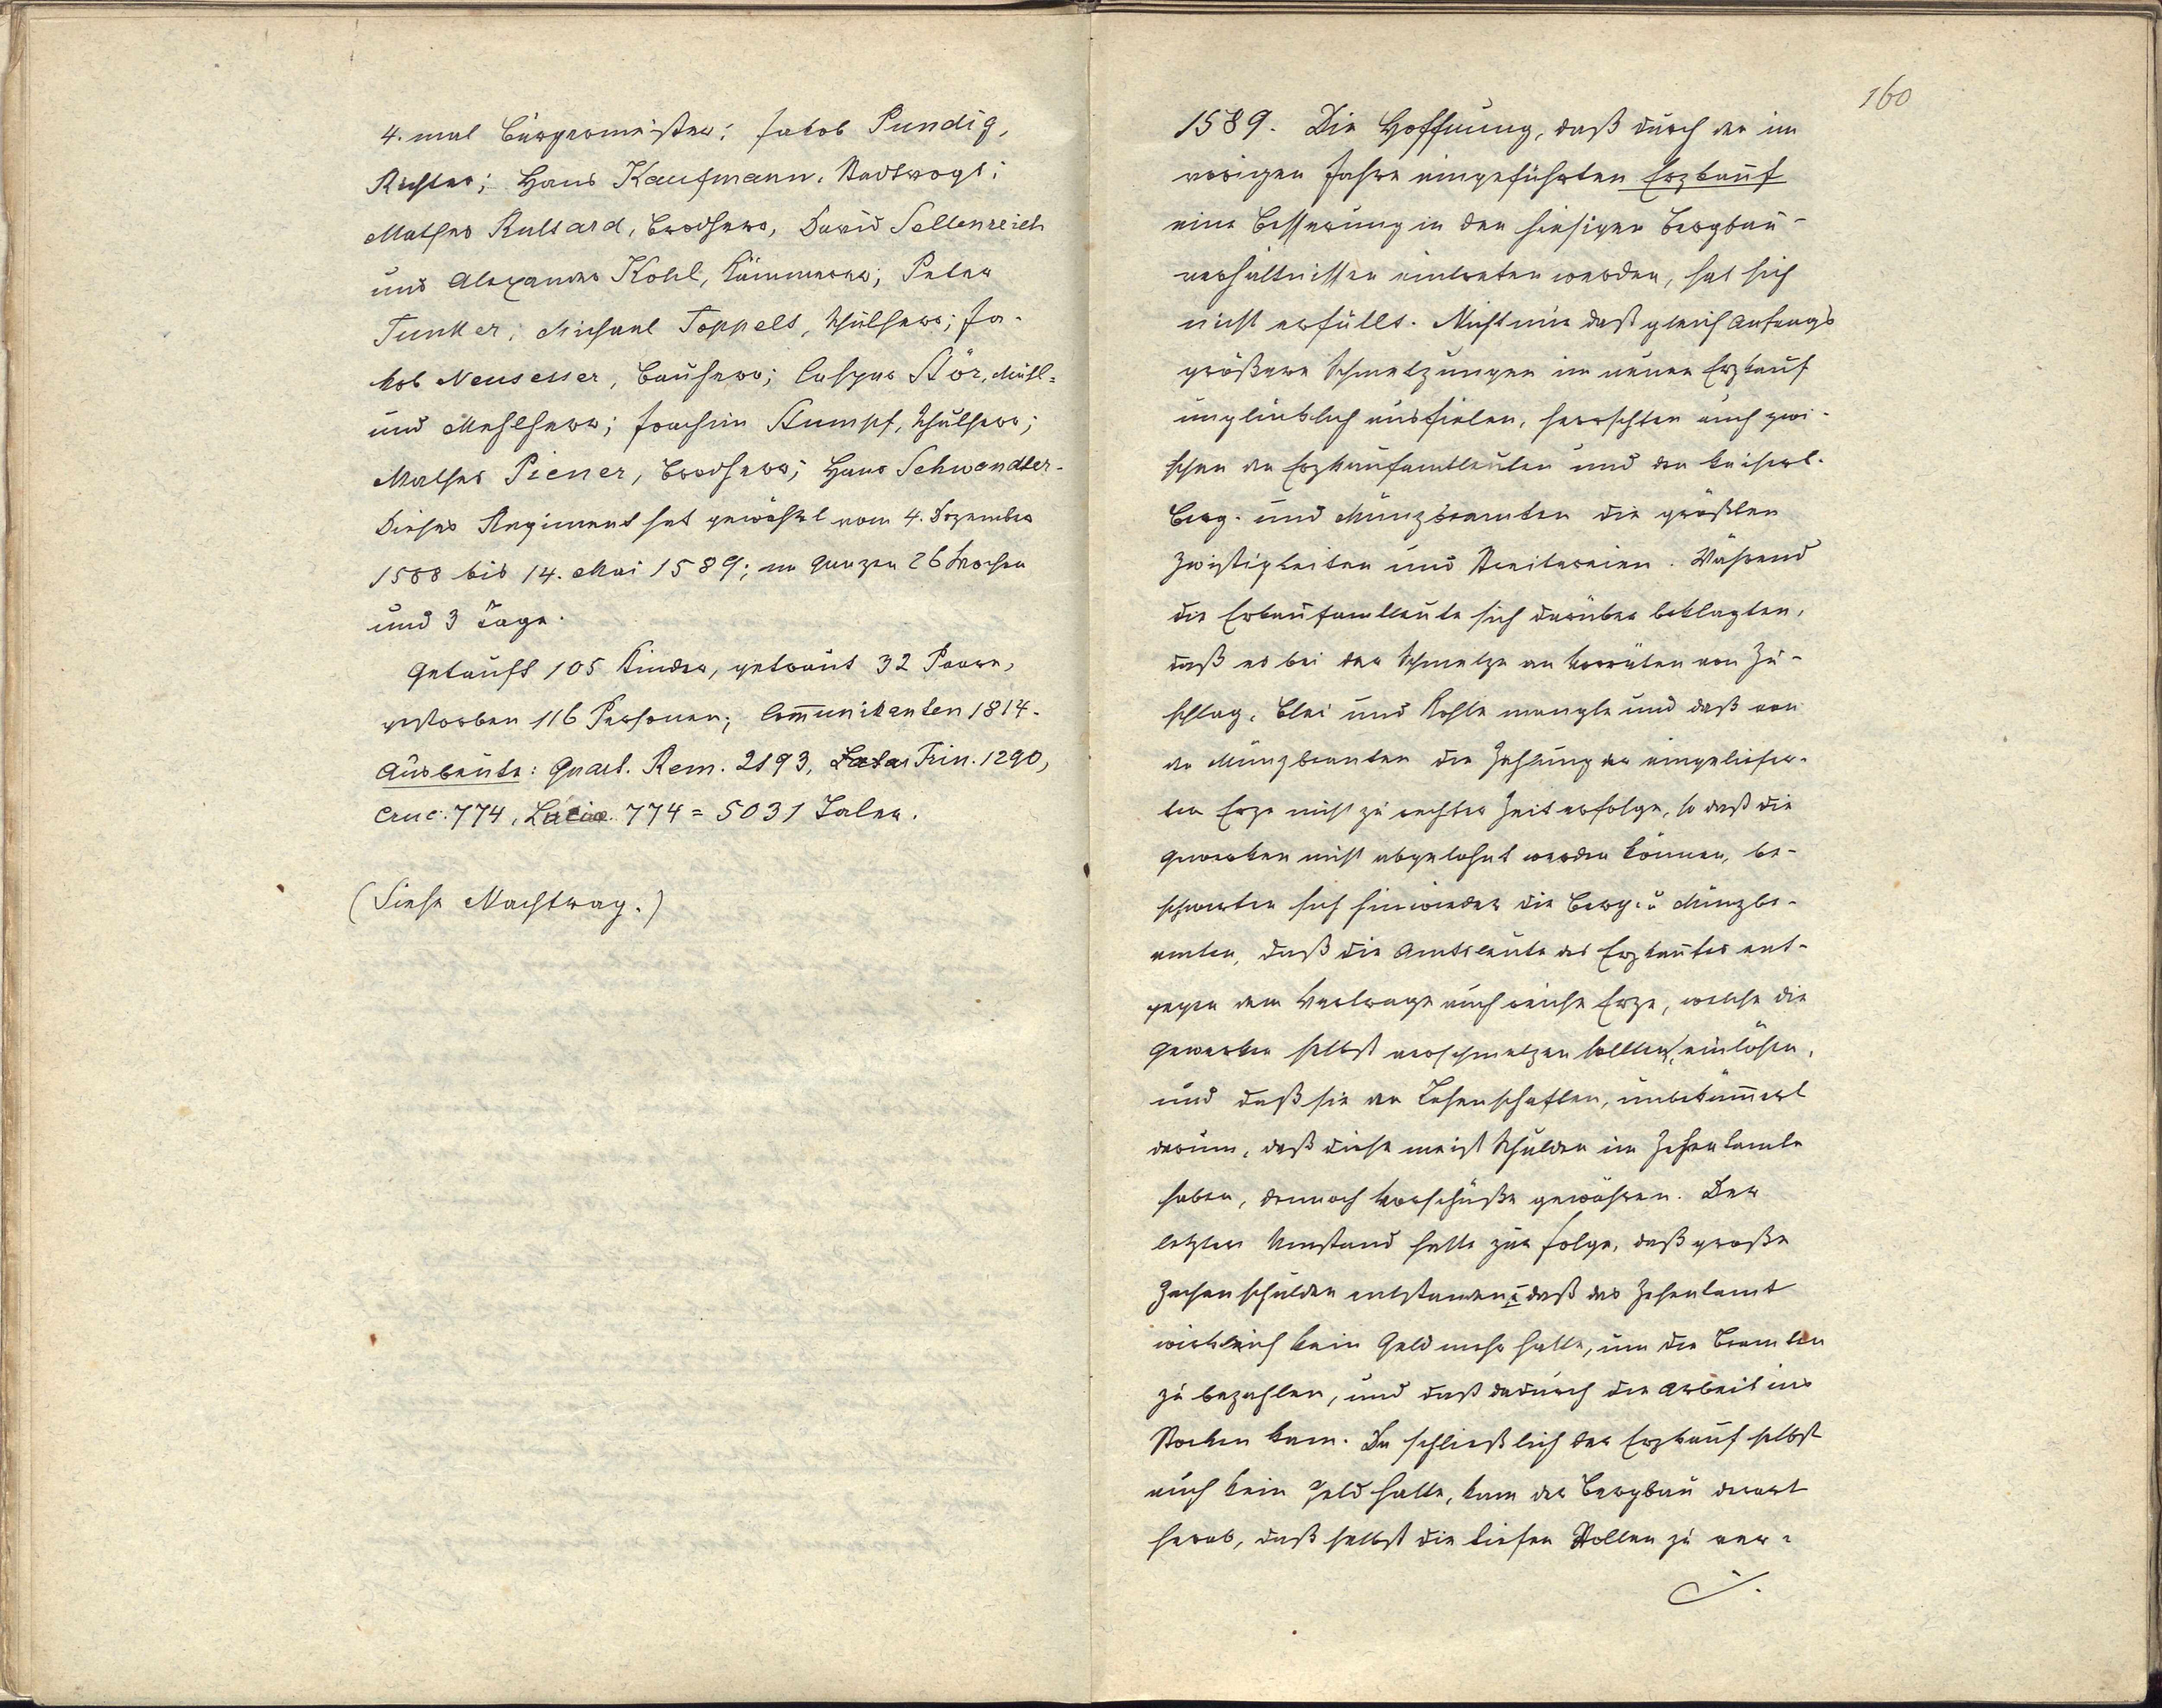 4. mal Bürgermeister; Jakob Pundig,
Richter; Hans Kaufmann, Stadtvogt;
Mathes Rulsard, Brodherr, David Seltenreich
und Alexander Kohl, Kämmerer; Peter
Tunker; Michael Toppelt, Schulherr; Ja-
kob Neusesser, Bauherr; Caspar Stör, Mühl-
und Mehlherr; Joachim Stumpf, Schulherr;
Mathes Piener, Brodherr; Hans Schwandler.
Dieses Regiment hat gewährt vom 4. Dezember
1588 bis 14. Mai 1589; im ganzen 26 Wochen
und 3 Tage.
Getauft 105 Kinder, getraut 32 Paare,
gestorben 116 Personen; Communikanten 1814.
Ausbeute: Quart. Rem. 2193, Trin. 1290,
Cruc. 774, Luciae 774 = 5031 Taler.
(Siehe Nachtrag.)
160
1589. Die Hoffnung, daß durch den im
vorigen Jahre eingeführten Erzkauf
eine Besserung in den hiesigen Bergbau-
verhältnissen eintreten werden, hat sich
nicht erfüllt. Nicht nur daß gleich Anfangs
größere Schmelzungen im neuen Erzkauf
unglücklich ausfielen, herrschten auch zwi-
schen den Erzkaufamtleuten und den kaiserl.
Berg- und Münzbeamten die größten
Zwistigkeiten und Streitereien. Während
die Erkaufamtleute sich darüber beklagten,
daß es bei der Schmelze an Vorräten von Zu-
schlag, Blei und Kohle mangle und daß von
den Münzbeamten die Zahlung der eingeliefer-
ten Erze nicht zu rechter Zeit erfolge, so daß die
Gewerken nicht abgelohnt werden können, be-
schwerten sich hinwieder die Berg- u. Münzbe-
amten, daß die Amtsleute des Erzkaufes ent-
gegen dem Vertrage auch reiche Erze, welche die
Gewerken selbst verschmelzen sollten, einlösen,
und daß sie den Lehenschaften, unbekümmert
darum, daß diese meist Schulden im Zehentamte
haben, dennoch Vorschüße gewähren. Der
letztere Umstand hatte zur Folge, daß große
Zechenschulden entstanden u. daß das Zehentamt
wirklich kein Geld mehr hatte, um die Beamten
zu bezahlen, und daß dadurch die Arbeit ins
Stocken kam. Da schließlich der Erzkauf selbst
auch kein Geld hatte, kam der Bergbau derart
herab, daß selbst die tiefen Stollen zu ver-
./.